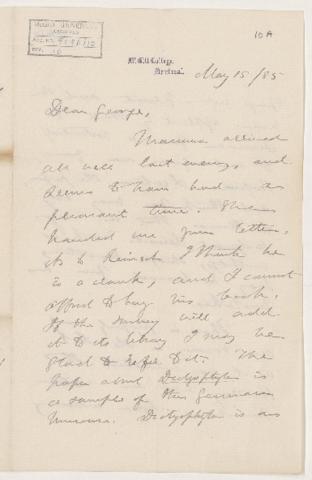 10A
McGill College,
Montreal.
May 15/85
Dear George,
Mamma arrived
all well last evening, and
seems to have had a
pleasant time. She
handed me your letter.
As to Reinsch I think he
is a crank, and I cannot
afford to buy his book.
If the Survey will add
it to its library I may be
glad to refer to it. The
paper about Dictyophyton is
a sample of the German
Dictyophyton is an